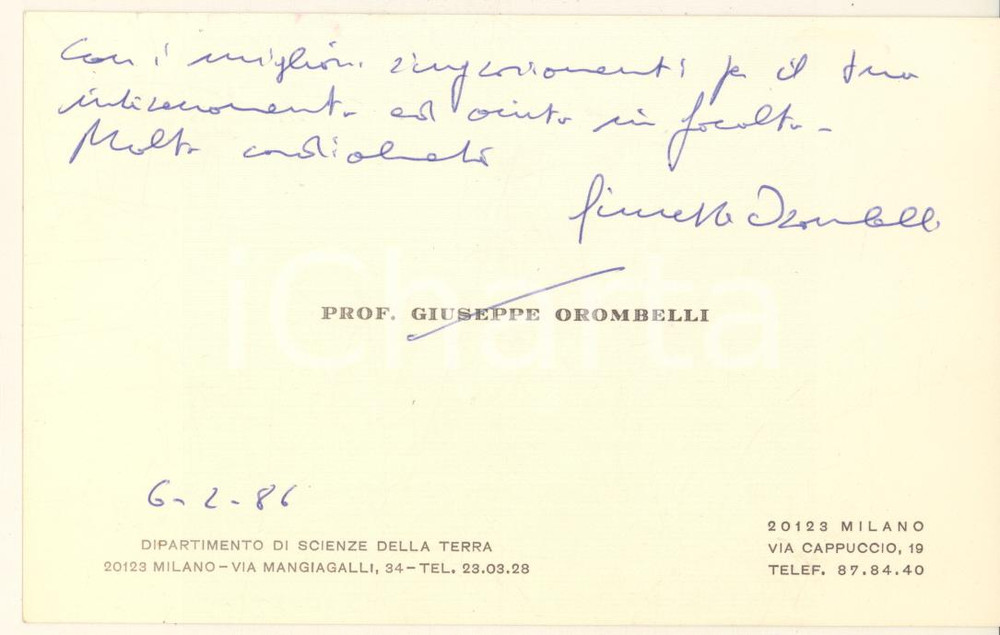 Con i migliori ringraziamenti per il tuo
interessamento ed aiuto in facoltà -
Molto cordialmente
Giuseppe Orombelli
PROF. GIUSEPPE OROMBELLI
iCharta
6-2-86
DIPARTIMENTO DI SCIENZE DELLA TERRA
20123 MILANO – VIA MANGIAGALLI, 34 – TEL. 23.03.28
20123 MILANO
VIA CAPPUCCIO, 19
TELEF. 87.84.40